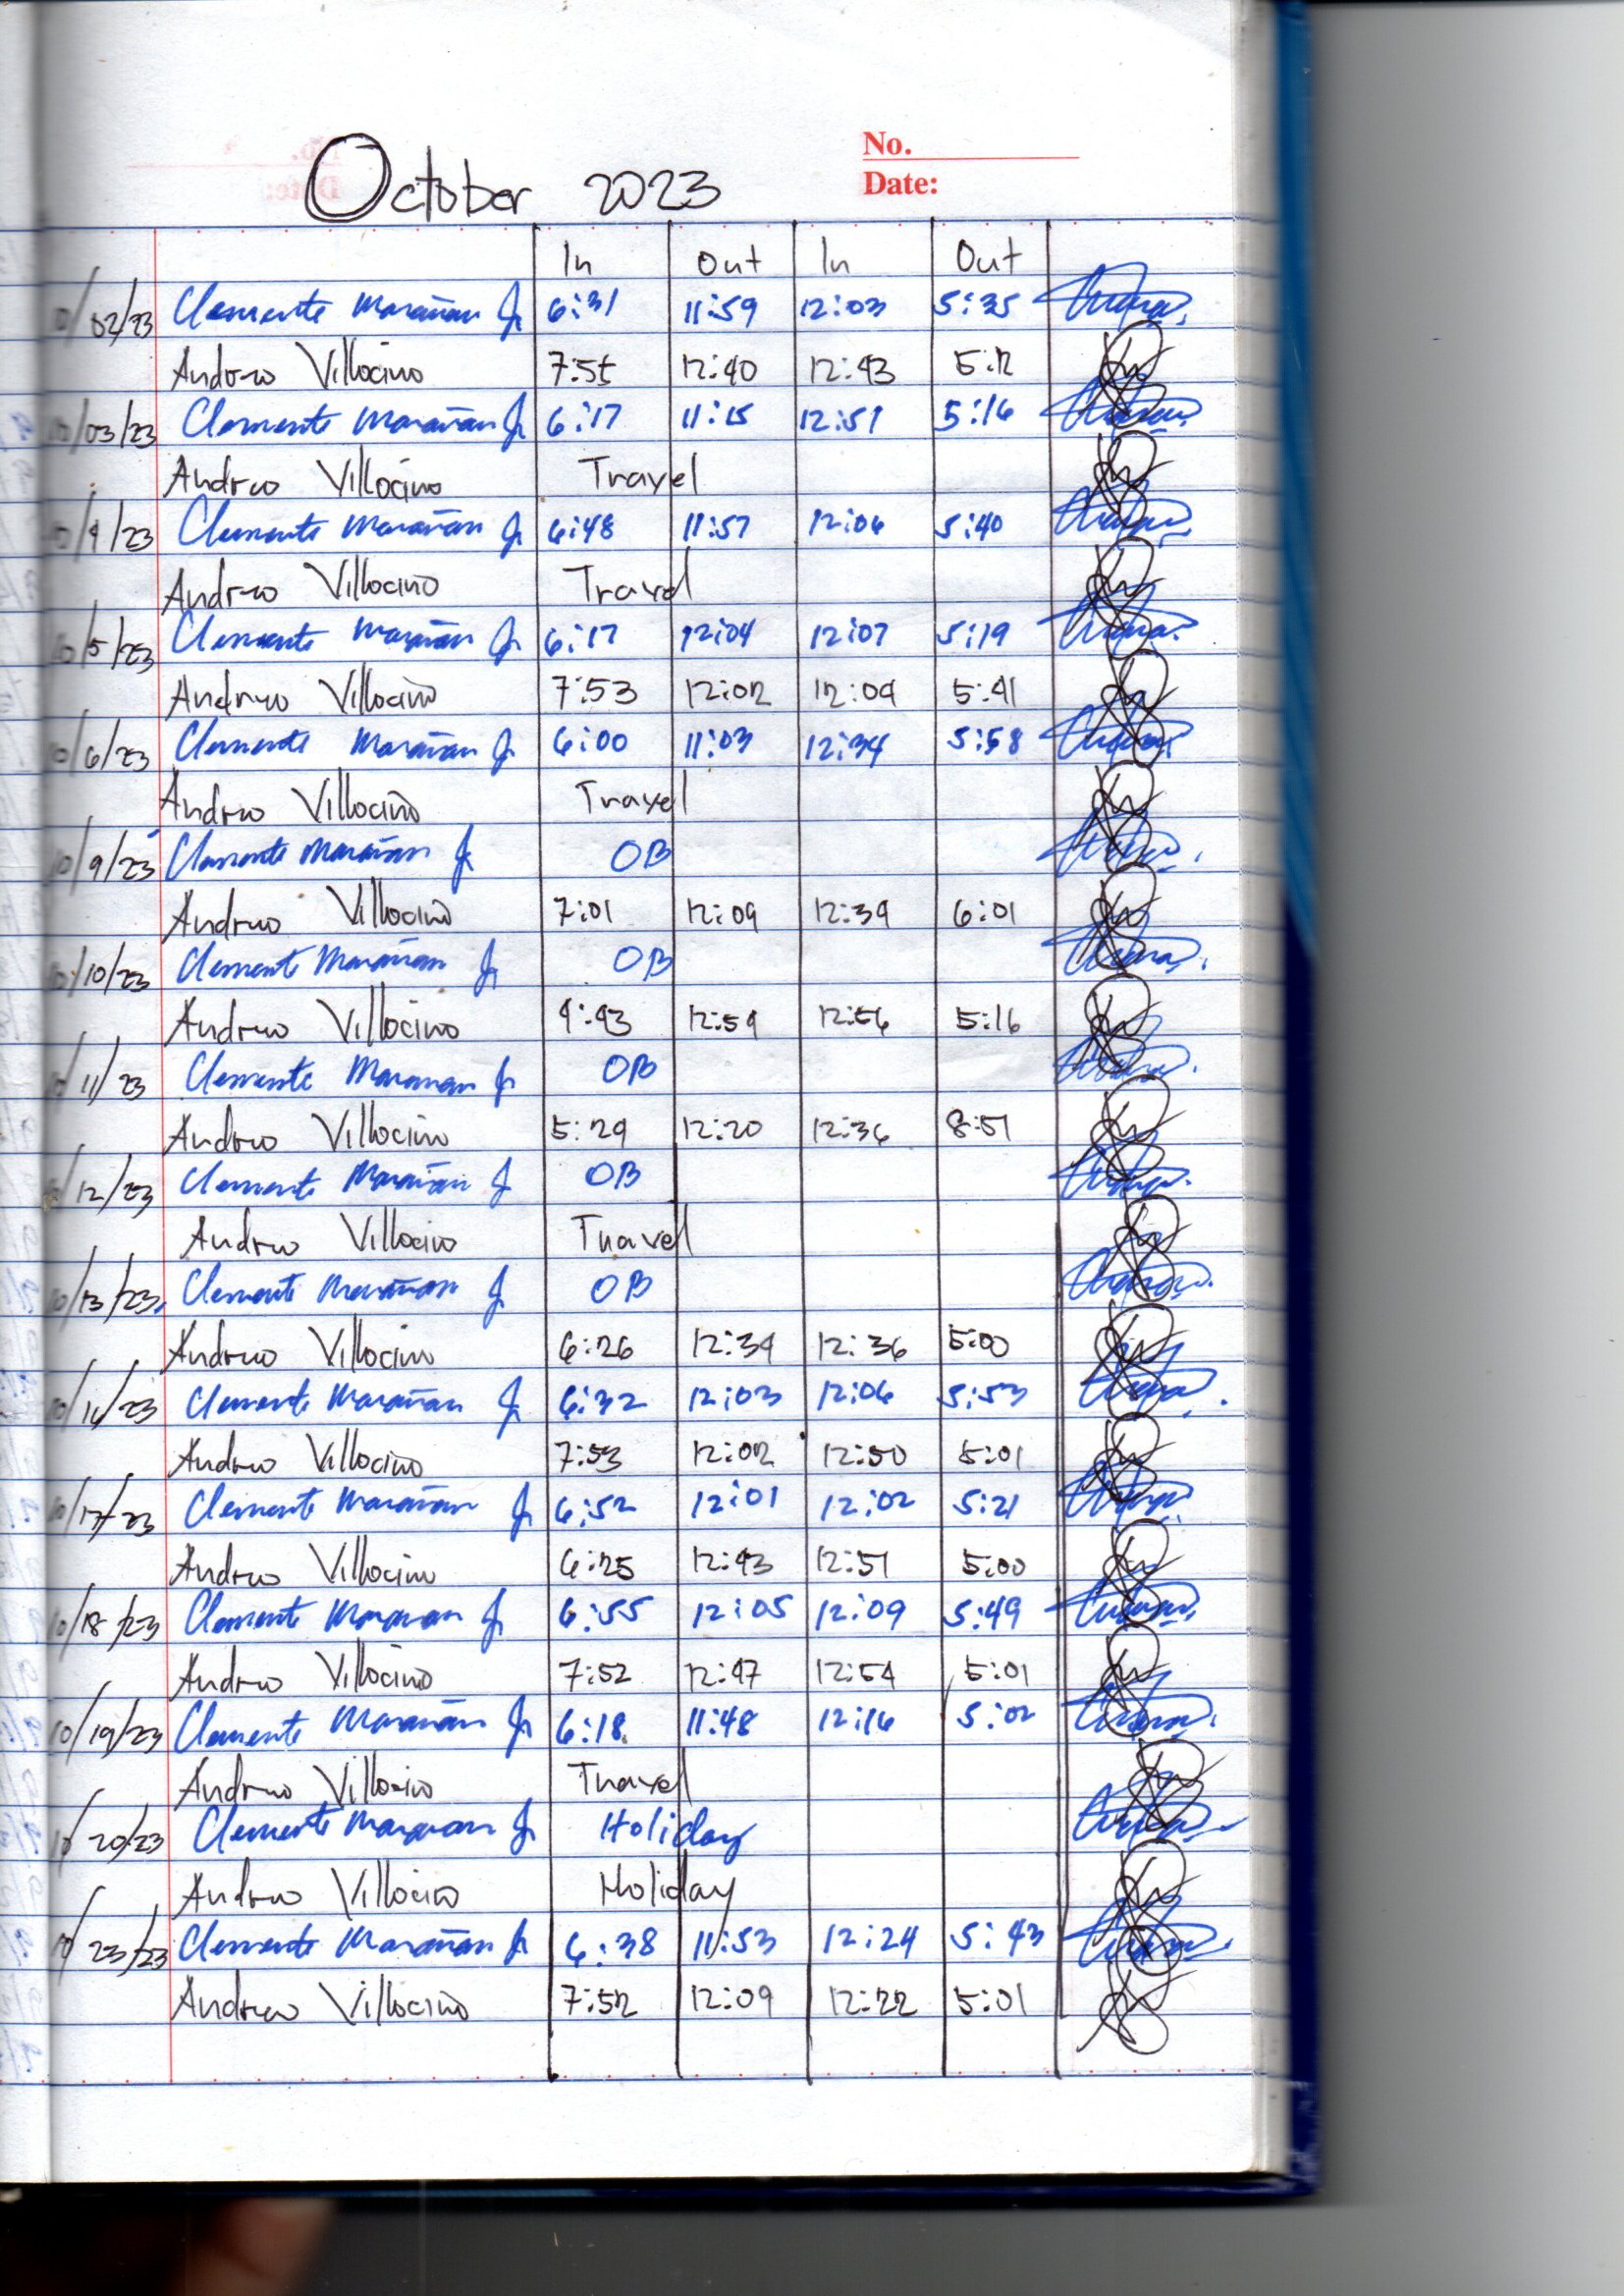 No.
Date:
October 2023
In Out In Out
10/02/23 Clemente Marañan Jr 6:31 11:59 12:03 5:35
Andrew Villocino 7:55 12:40 12:43 5:12
10/03/23 Clemente Marañan Jr 6:17 11:15 12:51 5:16
Andrew Villocino Travel
10/4/23 Clemente Marañan Jr 6:48 11:57 12:06 5:40
Andrew Villocino Travel
10/5/23 Clemente Marañan Jr 6:17 12:04 12:07 5:19
Andrew Villocino 7:53 12:02 12:04 5:41
10/6/23 Clemente Marañan Jr 6:00 11:03 12:34 5:58
Andrew Villocino Travel
10/9/23 Clemente Marañan Jr OB
Andrew Villocino 7:01 12:09 12:39 6:01
10/10/23 Clemente Marañan Jr OB
Andrew Villocino 12:54 12:56 5:16
10/11/23 Clemente Marañan Jr OB
Andrew Villocino 5:29 12:20 12:36 8:51
10/12/23 Clemente Marañan Jr OB
Andrew Villocino Travel
10/13/23 Clemente Marañan Jr OB
Andrew Villocino 6:26 12:34 12:36 5:00
10/16/23 Clemente Marañan Jr 6:32 12:03 12:06 5:53
Andrew Villocino 7:53 12:02 12:50 5:01
10/17/23 Clemente Marañan Jr 6:52 12:01 12:02 5:21
Andrew Villocino 6:25 12:43 12:51 5:00
10/18/23 Clemente Marañan Jr 6:55 12:05 12:09 5:49
Andrew Villocino 7:52 12:47 12:54 5:01
10/19/23 Clemente Marañan Jr 6:18 11:48 12:16 5:02
Andrew Villocino Travel
10/20/23 Clemente Marañan Jr Holiday
Andrew Villocino Holiday
10/23/23 Clemente Marañan Jr 6:38 11:53 12:24 5:43
Andrew Villocino 7:52 12:09 12:22 5:01